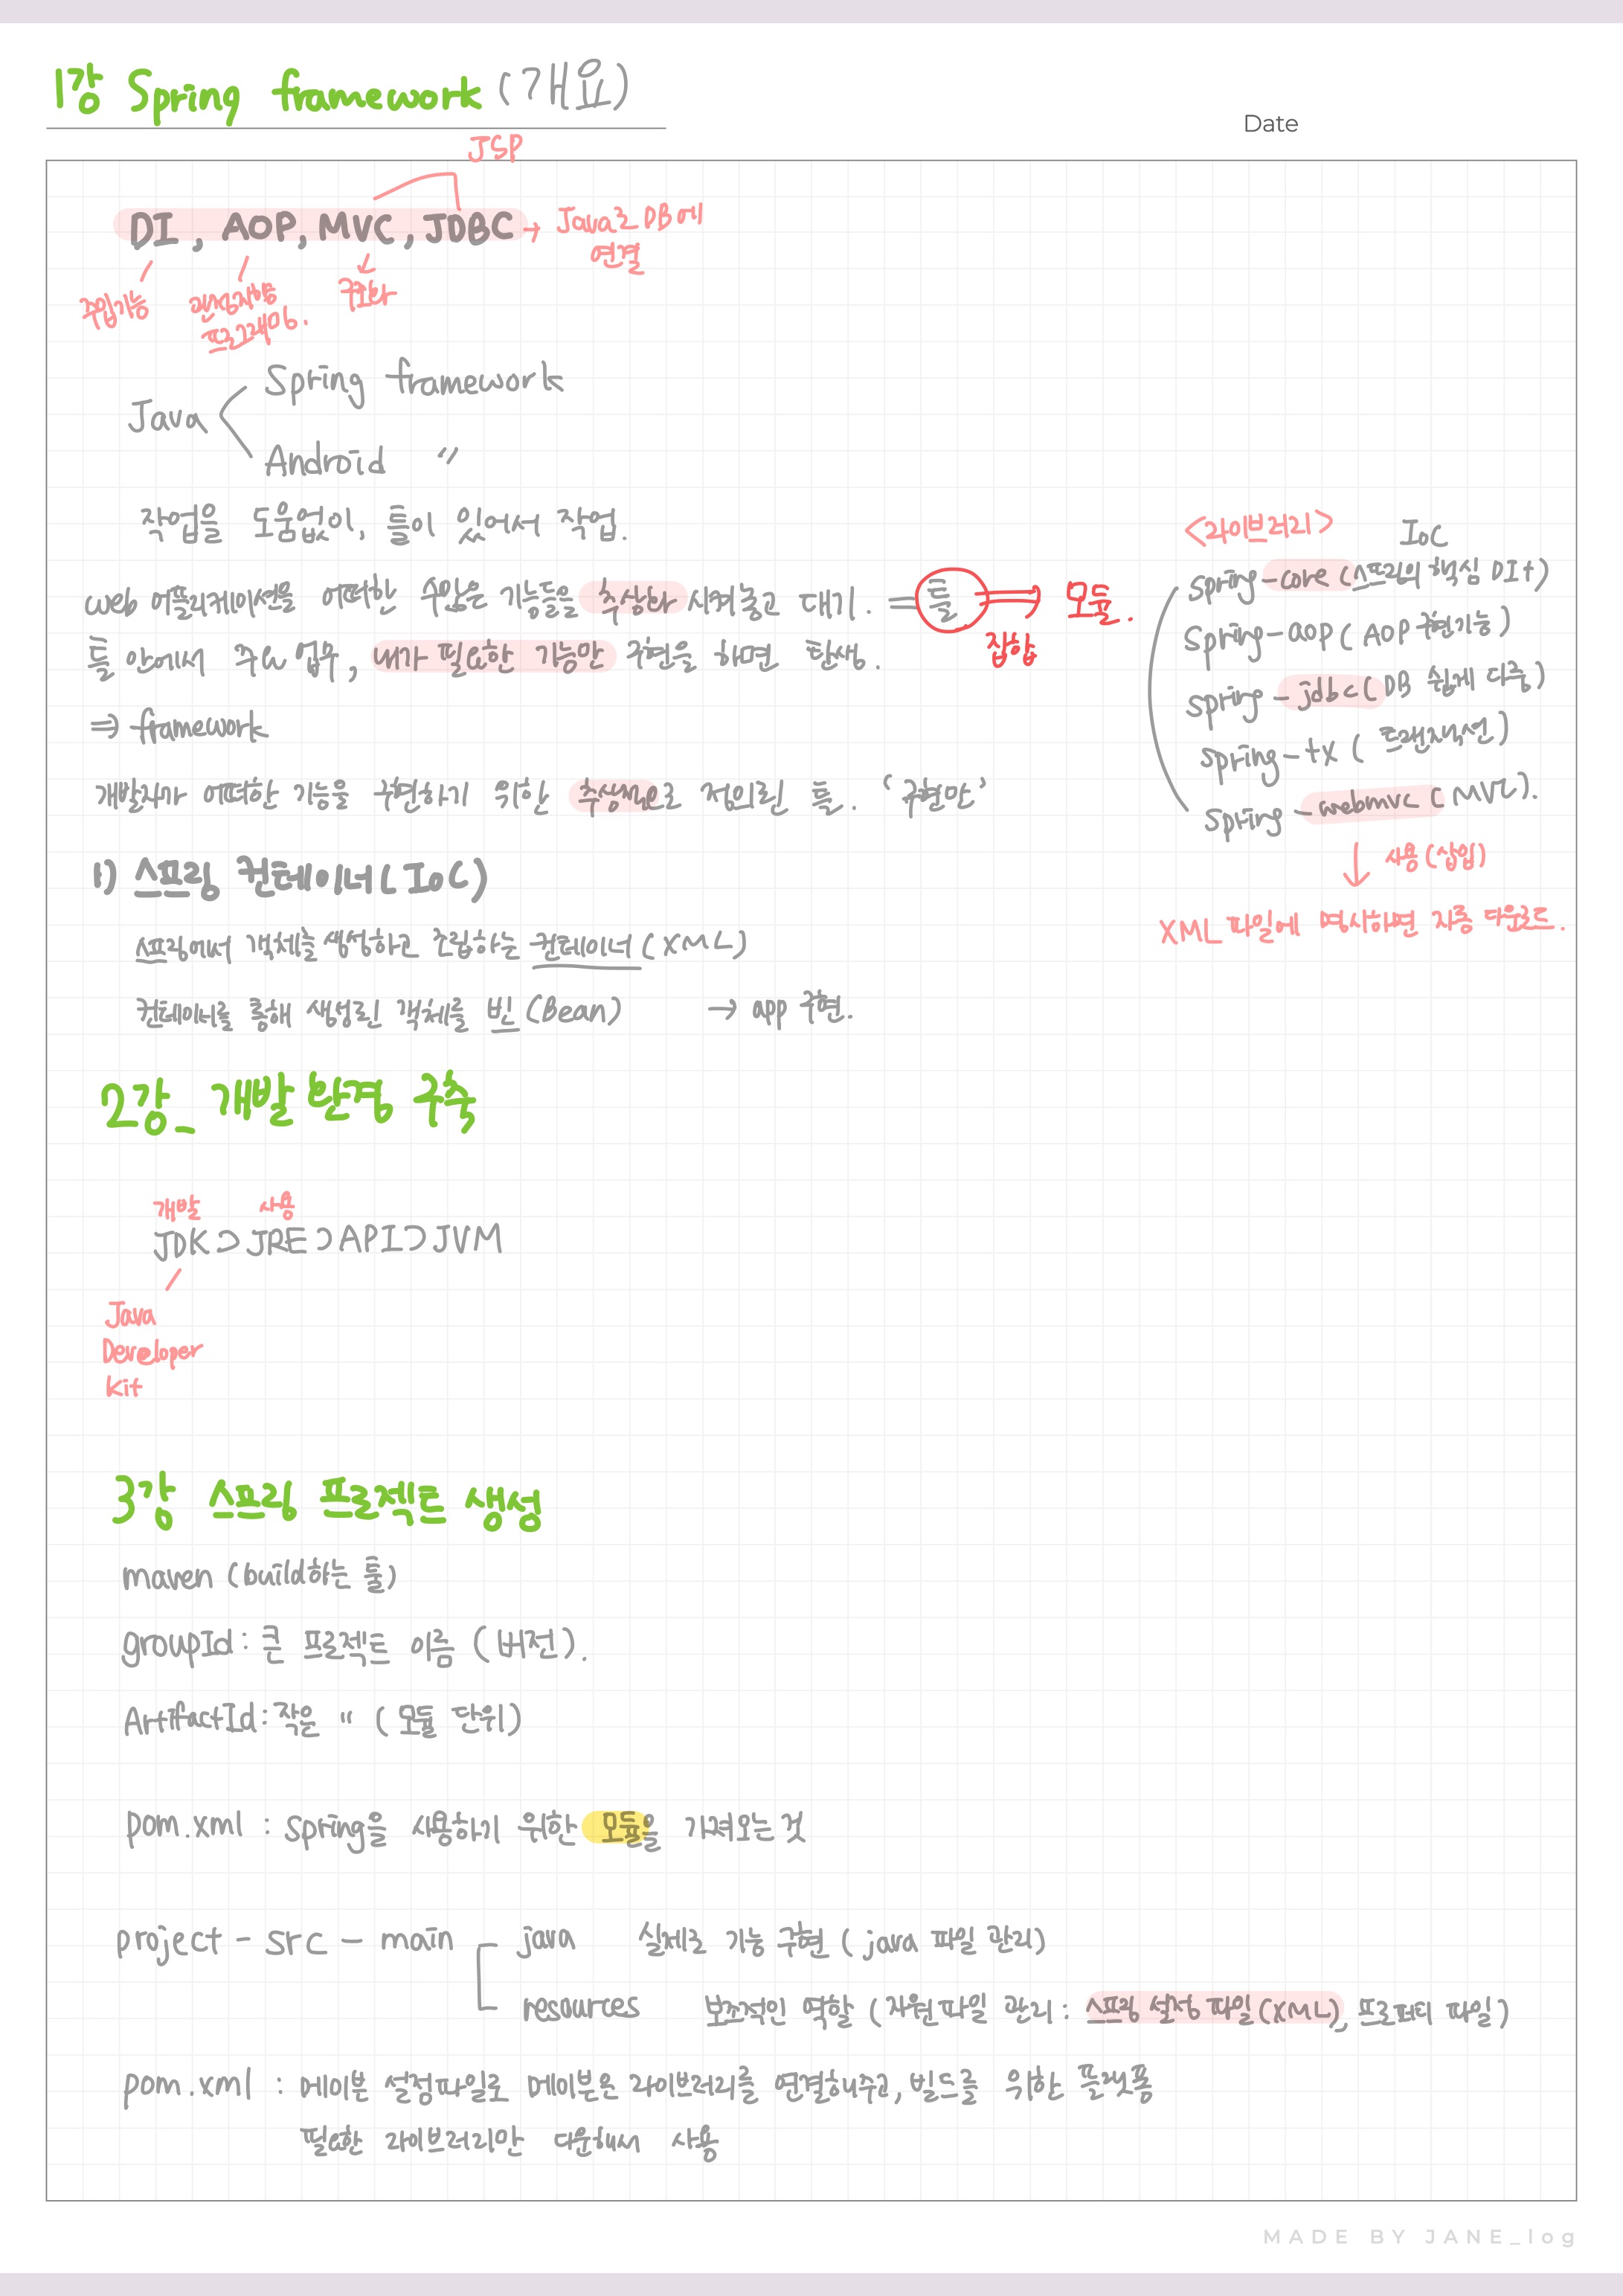 1강 Spring framework (개요)
Date
JSP
DI, AOP, MVC, JDBC → Java로 DB에
연결
주입기능
관점지향
프로그래밍.
구조화
Java < Spring framework
Android 〃
작업을 도움없이, 틀이 있어서 작업.
web 어플리케이션을 어떠한 수많은 기능들을 추상화 시켜놓고 대기. = 틀 ⇒ 모듈.
집합
틀 안에서 주요 업무, 내가 필요한 기능만 구현을 하면 탄생.
⇒ framework
개발자가 어떠한 기능을 구현하기 위한 추상적으로 정의된 틀. '구현만'
<라이브러리> IoC
spring-core (스프링의 핵심 DI+)
spring-aop (AOP 구현기능)
spring-jdbc (DB 쉽게 다룸)
spring-tx (트랜잭션)
spring-webmvc (MVC).
↓ 사용(삽입)
XML 파일에 명시하면 자동 다운로드.
1) 스프링 컨테이너(IoC)
스프링에서 객체를 생성하고 조립하는 컨테이너 (XML)
컨테이너를 통해 생성된 객체를 빈 (Bean) → app 구현.
2강_ 개발환경 구축
개발 사용
JDK⊃JRE⊃API⊃JVM
Java
Developer
Kit
3강 스프링 프로젝트 생성
maven (build하는 툴)
groupId : 큰 프로젝트 이름 (버전).
ArtifactId : 작은 〃 (모듈 단위)
pom.xml : Spring을 사용하기 위한 모듈을 가져오는 것
project - src - main java 실제로 기능 구현 (java 파일 관리)
resources 보조적인 역할 (자원파일 관리: 스프링 설정 파일(XML), 프로퍼티 파일)
pom.xml : 메이븐 설정파일로 메이븐은 라이브러리를 연결해주고, 빌드를 위한 플랫폼
필요한 라이브러리만 다운해서 사용
MADE BY JANE_log